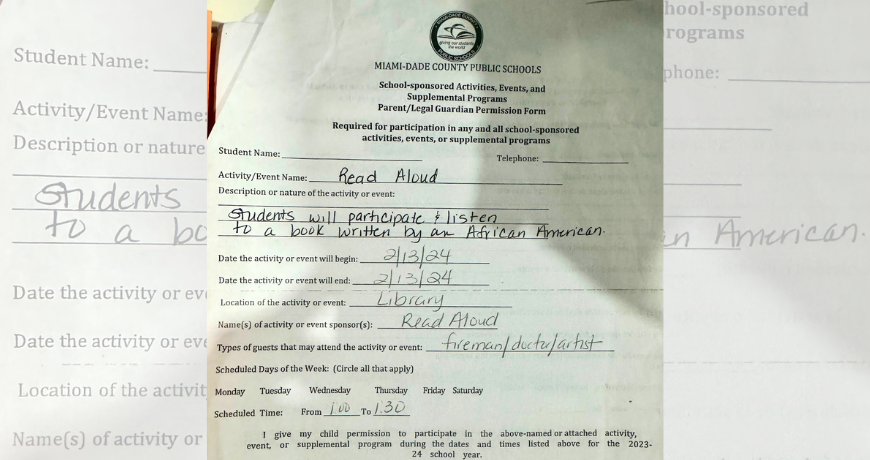 giving our students
the world
MIAMI-DADE COUNTY PUBLIC SCHOOLS
School-sponsored Activities, Events, and
Supplemental Programs
Parent/Legal Guardian Permission Form
Required for participation in any and all school-sponsored
activities, events, or supplemental programs
Student Name:
Telephone:
Activity/Event Name: Read Aloud
Description or nature of the activity or event:
Students will participate & listen
to a book written by an African American.
Date the activity or event will begin: 2/13/24
Date the activity or event will end: 2/13/24
Location of the activity or event: Library
Name(s) of activity or event sponsor(s): Read Aloud
Types of guests that may attend the activity or event: fireman/doctor/artist
Scheduled Days of the Week: (Circle all that apply)
Monday Tuesday Wednesday Thursday Friday Saturday
Scheduled Time: From 1:00 To 1:30
I give my child permission to participate in the above-named or attached activity,
event, or supplemental program during the dates and times listed above for the 2023-
24 school year.
Student Name:
Activity/Event Name:
Description or nature
Students
to a bo
Date the activity or eve
Date the activity or eve
Location of the activit
Name(s) of activity or
hool-sponsored
rograms
phone:
n American.